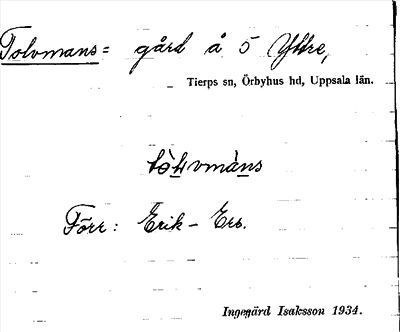 Tolvmans= gård å 5 Yttre,
Tierps sn, Örbyhus hd, Uppsala län.
Förr: Erik-Ers.
Ingegärd Isaksson 1934.